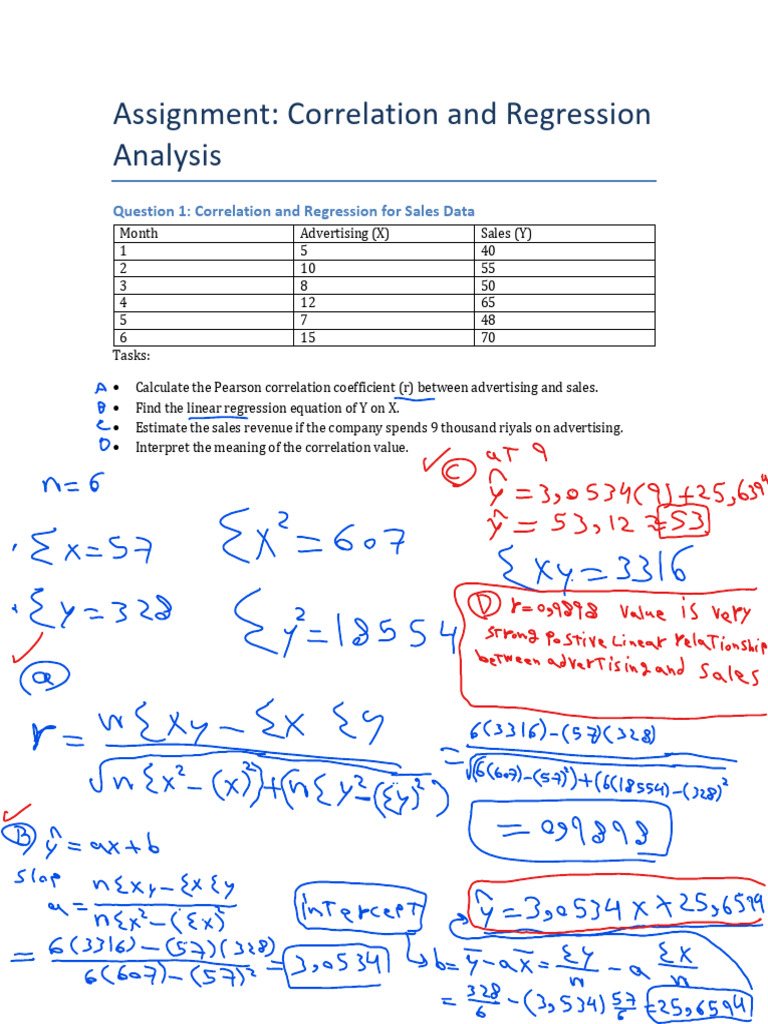 Assignment: Correlation and Regression
Analysis
Question 1: Correlation and Regression for Sales Data
Month Advertising (X) Sales (Y)
1 5 40
2 10 55
3 8 50
4 12 65
5 7 48
6 15 70
Tasks:
A • Calculate the Pearson correlation coefficient (r) between advertising and sales.
B • Find the linear regression equation of Y on X.
C • Estimate the sales revenue if the company spends 9 thousand riyals on advertising.
D • Interpret the meaning of the correlation value.
n = 6
Σx = 57
Σx² = 607
Σy = 328
Σy² = 18554
✓ C at 9
ŷ = 3,0534(9) + 25,6394
ŷ = 53,12 ≈ 53
Σxy = 3316
D r = 0,9898 value is very
strong postive Linear relationship
between advertising and Sales
✓ a
r = nΣxy - Σx Σy / √(nΣx² - (x)²) + (nΣy² - (Σy)²)
= 6(3316) - (57)(328) / √(6(607) - (57)²) + (6(18554) - (328)²
= 0,9898
✓ B ŷ = ax + b
Slop
a = nΣxy - ΣxΣy / nΣx² - (Σx)²
= 6(3316) - (57)(328) / 6(607) - (57)² = 3,0534
intercept
ŷ = 3,0534 x + 25,6594
b = y̅ - ax̅ = Σy/n - a Σx/n
= 328/6 - (3,534) 57/6 = 25,6594